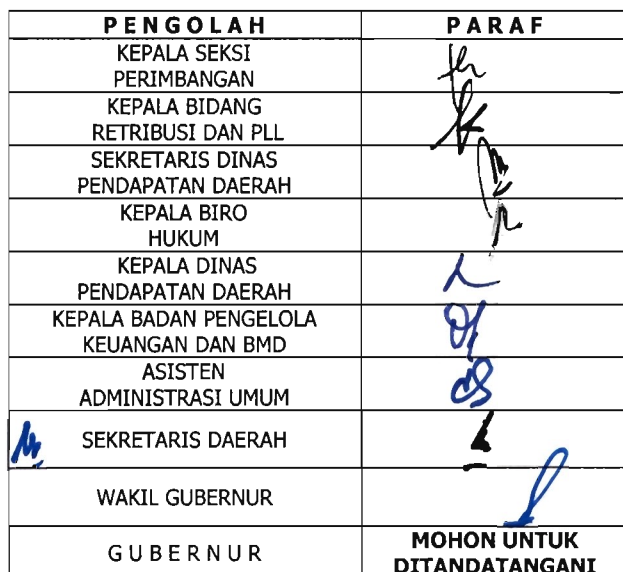 PENGOLAH PARAF
KEPALA SEKSI
PERIMBANGAN
KEPALA BIDANG
RETRIBUSI DAN PLL
SEKRETARIS DINAS
PENDAPATAN DAERAH
KEPALA BIRO
HUKUM
KEPALA DINAS
PENDAPATAN DAERAH
KEPALA BADAN PENGELOLA
KEUANGAN DAN BMD
ASISTEN
ADMINISTRASI UMUM
SEKRETARIS DAERAH
WAKIL GUBERNUR
GUBERNUR
MOHON UNTUK
DITANDATANGANI